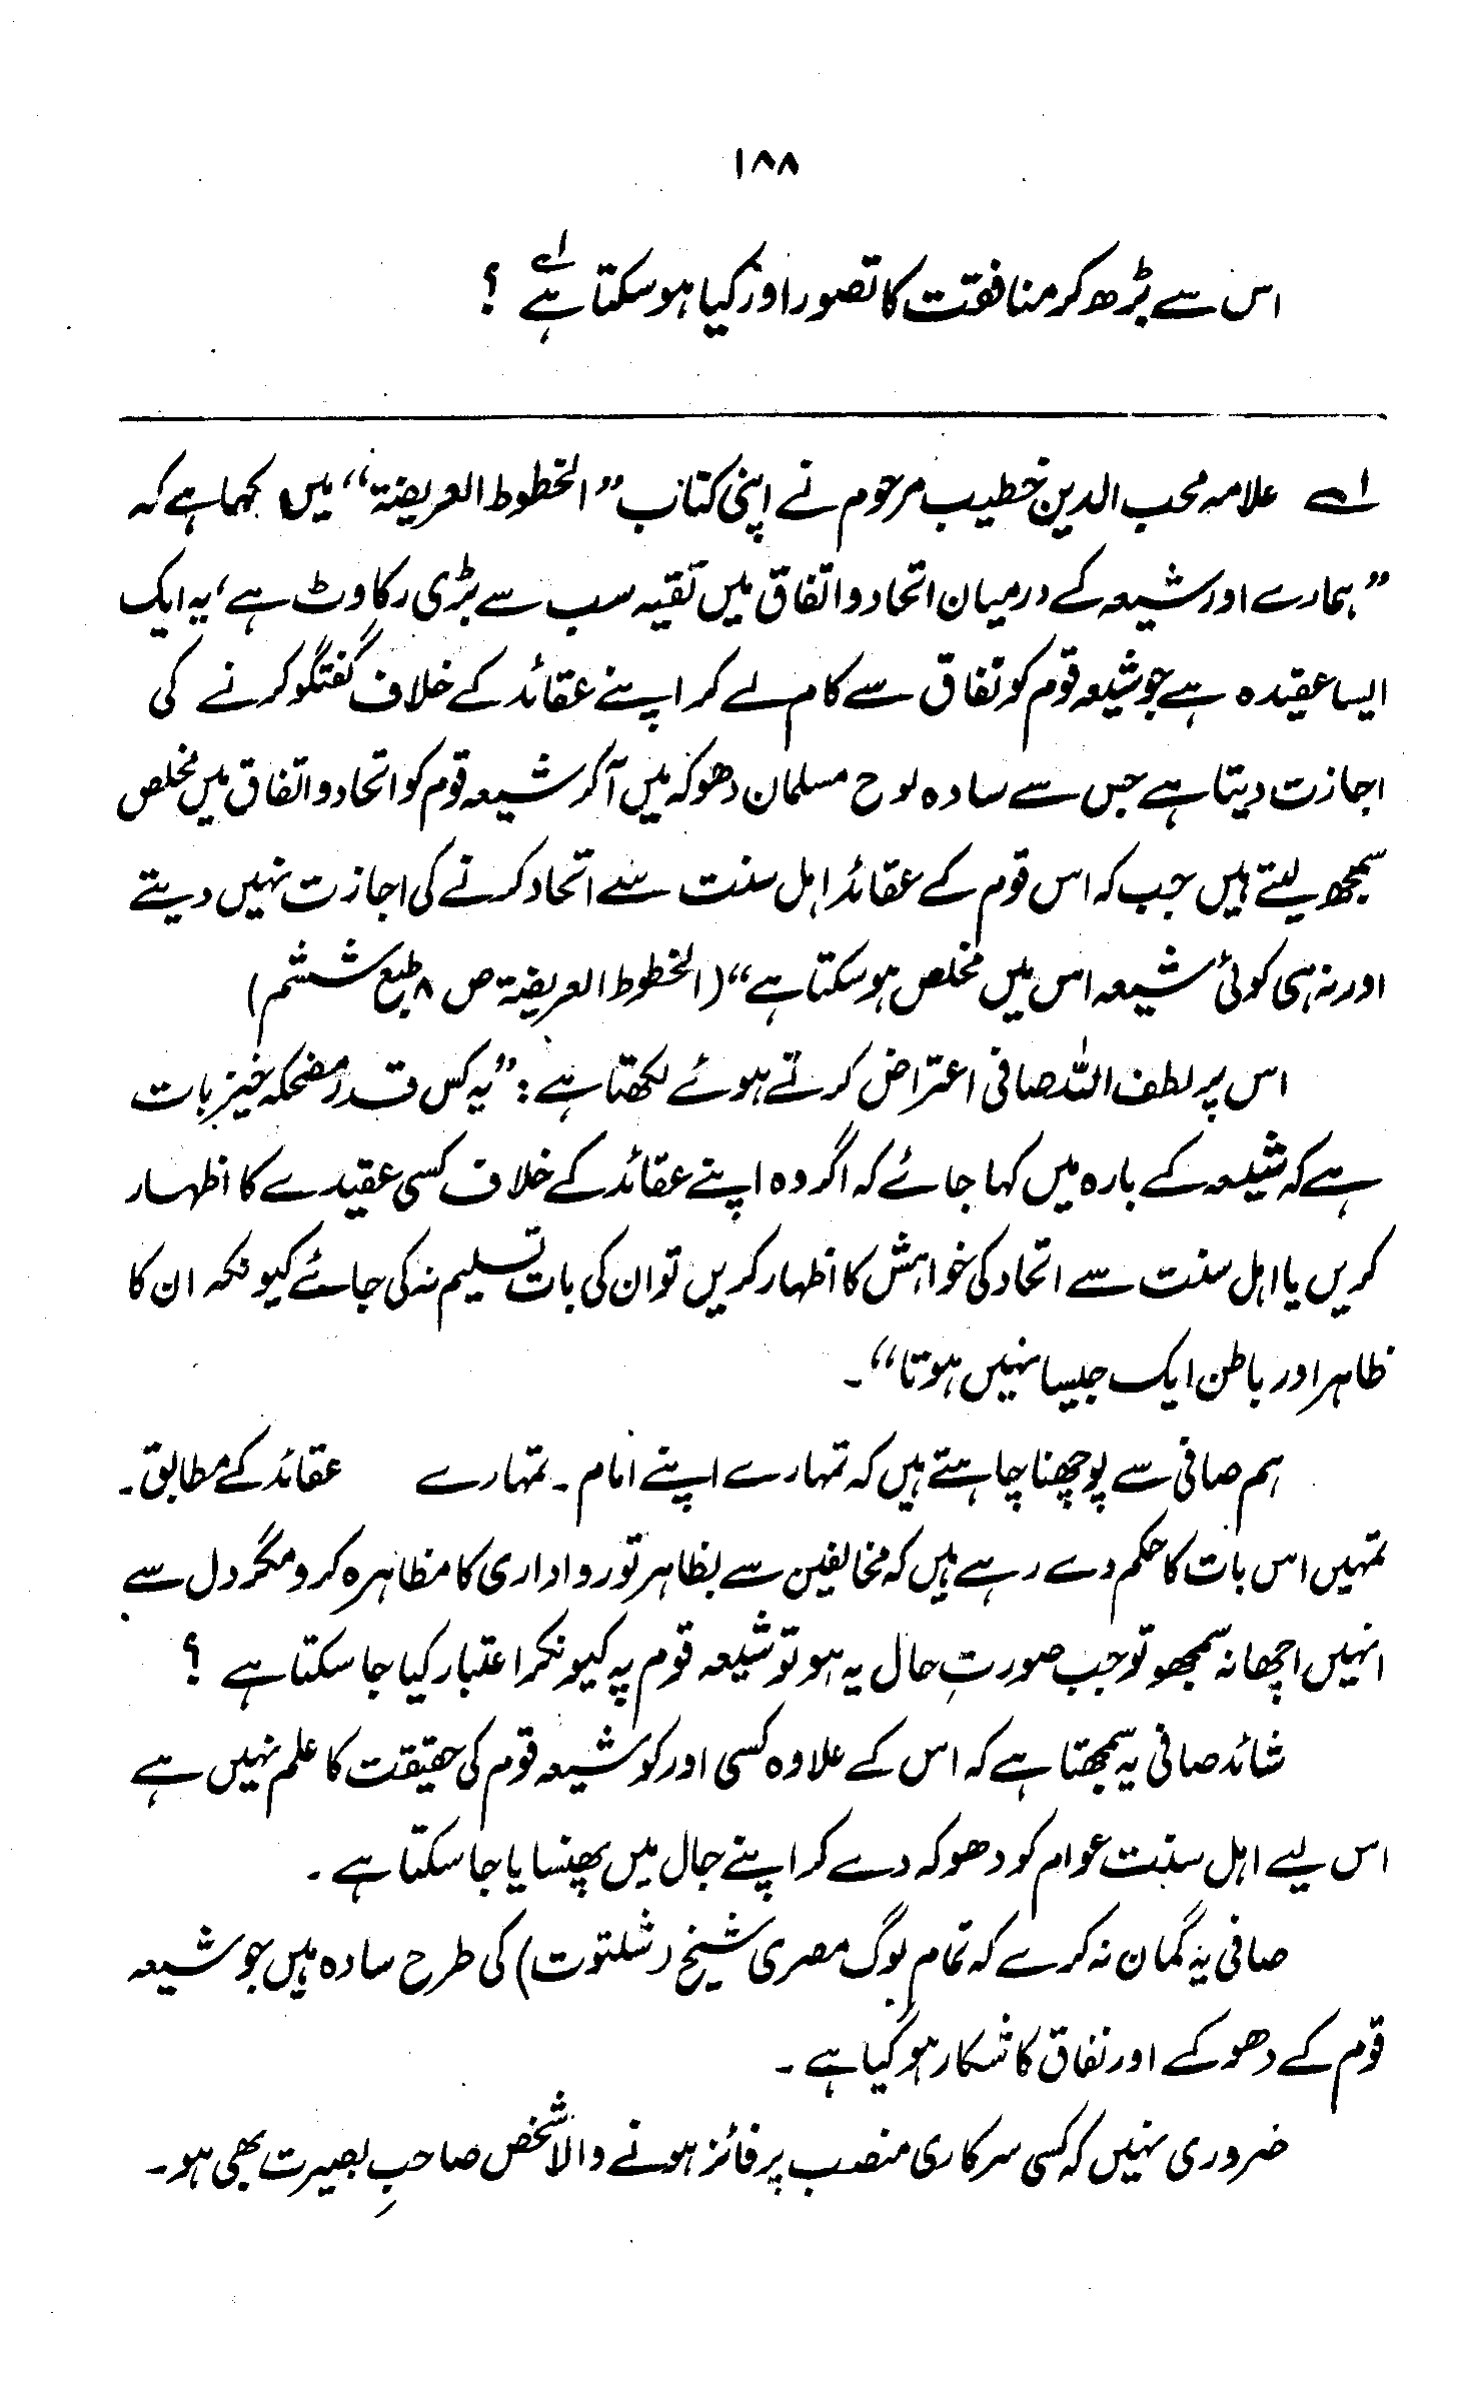 ۱۸۸
اس سے بڑھ کر منافقت کا تصور اور کیا ہو سکتا ہے ۱ے ؟
۱ے علامہ محب الدین خطیب مرحوم نے اپنی کتاب ”الخطوط العریضۃ“ میں کہا ہے کہ
”ہمارے اور شیعہ کے درمیان اتحاد و اتفاق میں تقیہ سب سے بڑی رکاوٹ ہے، یہ ایک
ایسا عقیدہ ہے جو شیعہ قوم کو نفاق سے کام لے کر اپنے عقائد کے خلاف گفتگو کرنے کی
اجازت دیتا ہے جس سے سادہ لوح مسلمان دھوکہ میں آ کر شیعہ قوم کو اتحاد و اتفاق میں مخلص
سمجھ لیتے ہیں جب کہ اس قوم کے عقائد اہل سنت سے اتحاد کرنے کی اجازت نہیں دیتے
اور نہ ہی کوئی شیعہ اس میں مخلص ہو سکتا ہے“ (الخطوط العریضۃ ص ۸ طبع ششم)
اس پر لطف اللہ صافی اعتراض کرتے ہوئے لکھتا ہے : ”یہ کس قدر مضحکہ خیز بات
ہے کہ شیعہ کے بارہ میں کہا جائے کہ اگر وہ اپنے عقائد کے خلاف کسی عقیدے کا اظہار
کریں یا اہل سنت سے اتحاد کی خواہش کا اظہار کریں تو ان کی بات تسلیم نہ کی جائے کیونکہ ان کا
ظاہر اور باطن ایک جیسا نہیں ہوتا“۔
ہم صافی سے پوچھنا چاہتے ہیں کہ تمہارے اپنے امام ۔ تمہارے عقائد کے مطابق ۔
تمہیں اس بات کا حکم دے رہے ہیں کہ مخالفین سے بظاہر تو رواداری کا مظاہرہ کرو مگر دل سے
انہیں اچھا نہ سمجھو تو جب صورتِ حال یہ ہو تو شیعہ قوم پہ کیونکر اعتبار کیا جا سکتا ہے ؟
شائد صافی یہ سمجھتا ہے کہ اس کے علاوہ کسی اور کو شیعہ قوم کی حقیقت کا علم نہیں ہے
اس لیے اہل سنت عوام کو دھوکہ دے کر اپنے جال میں پھنسایا جا سکتا ہے ۔
صافی یہ گمان نہ کرے کہ تمام لوگ مصری شیخ (شلتوت) کی طرح سادہ ہیں جو شیعہ
قوم کے دھوکے اور نفاق کا شکار ہو گیا ہے ۔
ضروری نہیں کہ کسی سرکاری منصب پر فائز ہونے والا شخص صاحبِ بصیرت بھی ہو ۔